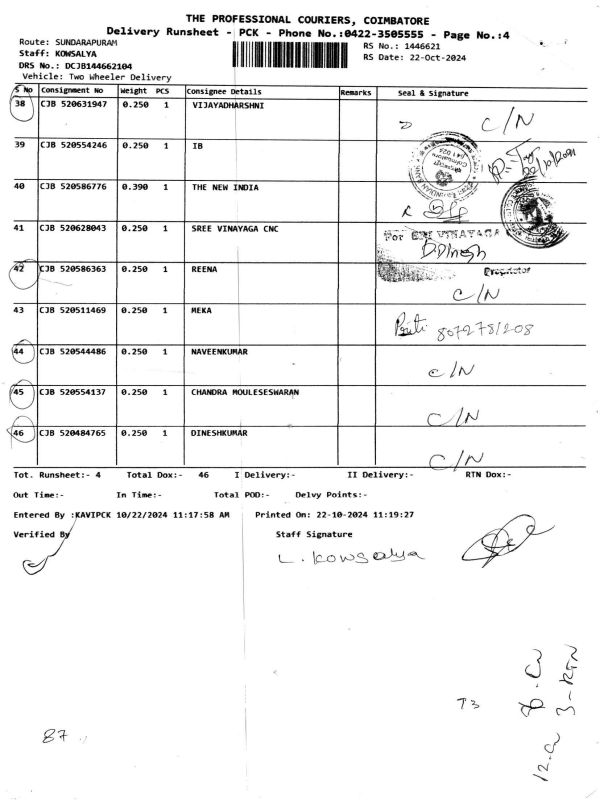 THE PROFESSIONAL COURIERS, COIMBATORE
Delivery Runsheet - PCK - Phone No.:0422-3505555 - Page No.:4
Route: SUNDARAPURAM
Staff: KOWSALYA
DRS No.: DCJB144662104
Vehicle: Two Wheeler Delivery
RS No.: 1446621
RS Date: 22-Oct-2024
S No Consignment No Weight PCS Consignee Details Remarks Seal & Signature
38 CJB 520631947 0.250 1 VIJAYADHARSHNI C/N
39 CJB 520554246 0.250 1 IB
40 CJB 520586776 0.390 1 THE NEW INDIA
41 CJB 520628043 0.250 1 SREE VINAYAGA CNC For SRI VINAYAGA
Proprietor
42 CJB 520586363 0.250 1 REENA C/N
43 CJB 520511469 0.250 1 MEKA
44 CJB 520544486 0.250 1 NAVEENKUMAR C/N
45 CJB 520554137 0.250 1 CHANDRA MOULESESWARAN C/N
46 CJB 520484765 0.250 1 DINESHKUMAR C/N
Tot. Runsheet:- 4 Total Dox:- 46 I Delivery:- II Delivery:- RTN Dox:-
Out Time:- In Time:- Total POD:- Delvy Points:-
Entered By :KAVIPCK 10/22/2024 11:17:58 AM Printed On: 22-10-2024 11:19:27
Verified By Staff Signature
L. Kowsalya
T3
3-RTN
87